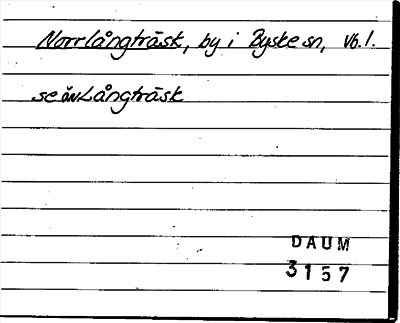 Norrlångträsk, by i Byske sn, Vb. l.
se även Långträsk
DAUM
3157